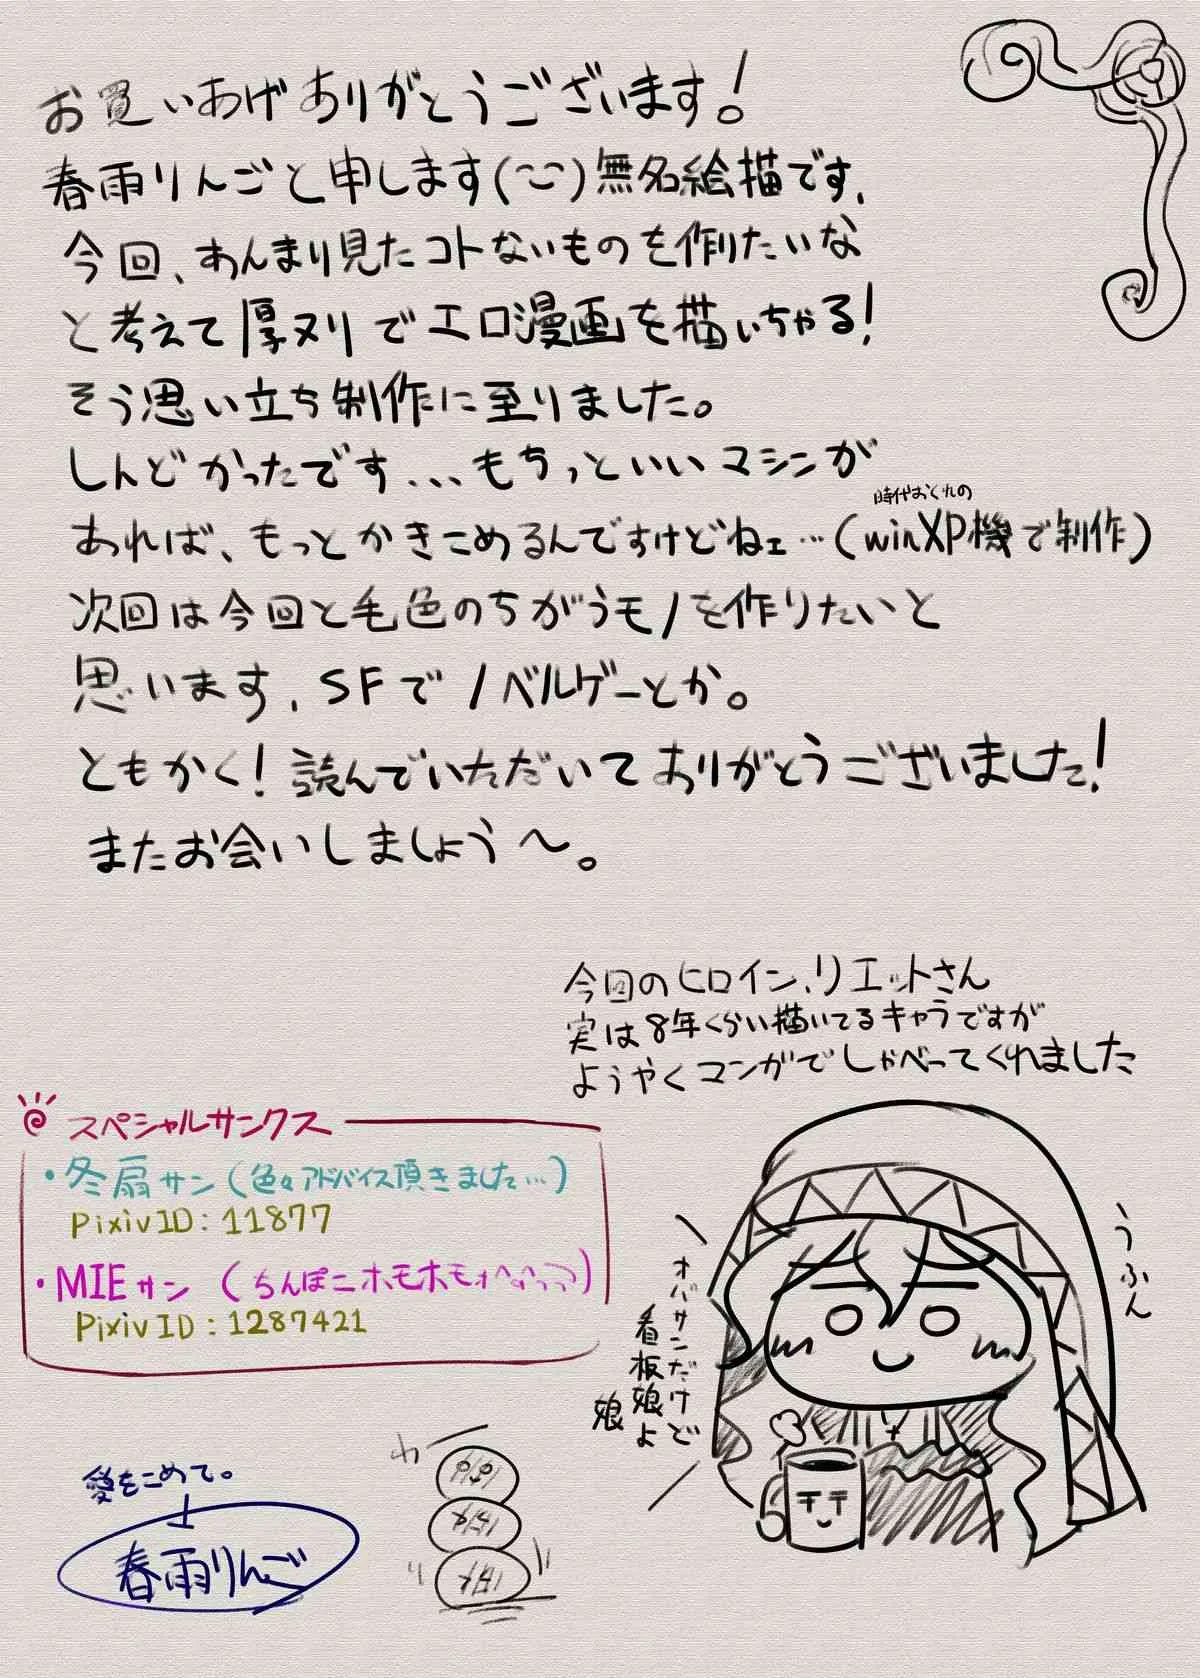 お買いあげありがとうございます!
春雨りんごと申します(︶︶)無名絵描です、
今回、あんまり見たコトないものを作りたいな
と考えて厚ヌリでエロ漫画を描いちゃる!
そう思い立ち制作に至りました。
しんどかったです...もちっといいマシンが
時代おくれの
あれば、もっとかきこめるんですけどねェ…(winXP機で制作)
次回は今回と毛色のちがうモノを作りたいと
思います、SFでノベルゲーとか。
ともかく!読んでいただいてありがとうございました!
またお会いしましょう〜。
今回のヒロイン、リエットさん
実は8年くらい描いてるキャラですが
ようやくマンガでしゃべってくれました
スペシャルサンクス
・冬扇サン(色々アドバイス頂きました…)
PixivID:11877
・MIEサン(ちんぽニホモホモ
PixivID:1287421
うふん
オバサンだけど
看板娘よ
娘
愛をこめて。
春雨りんご